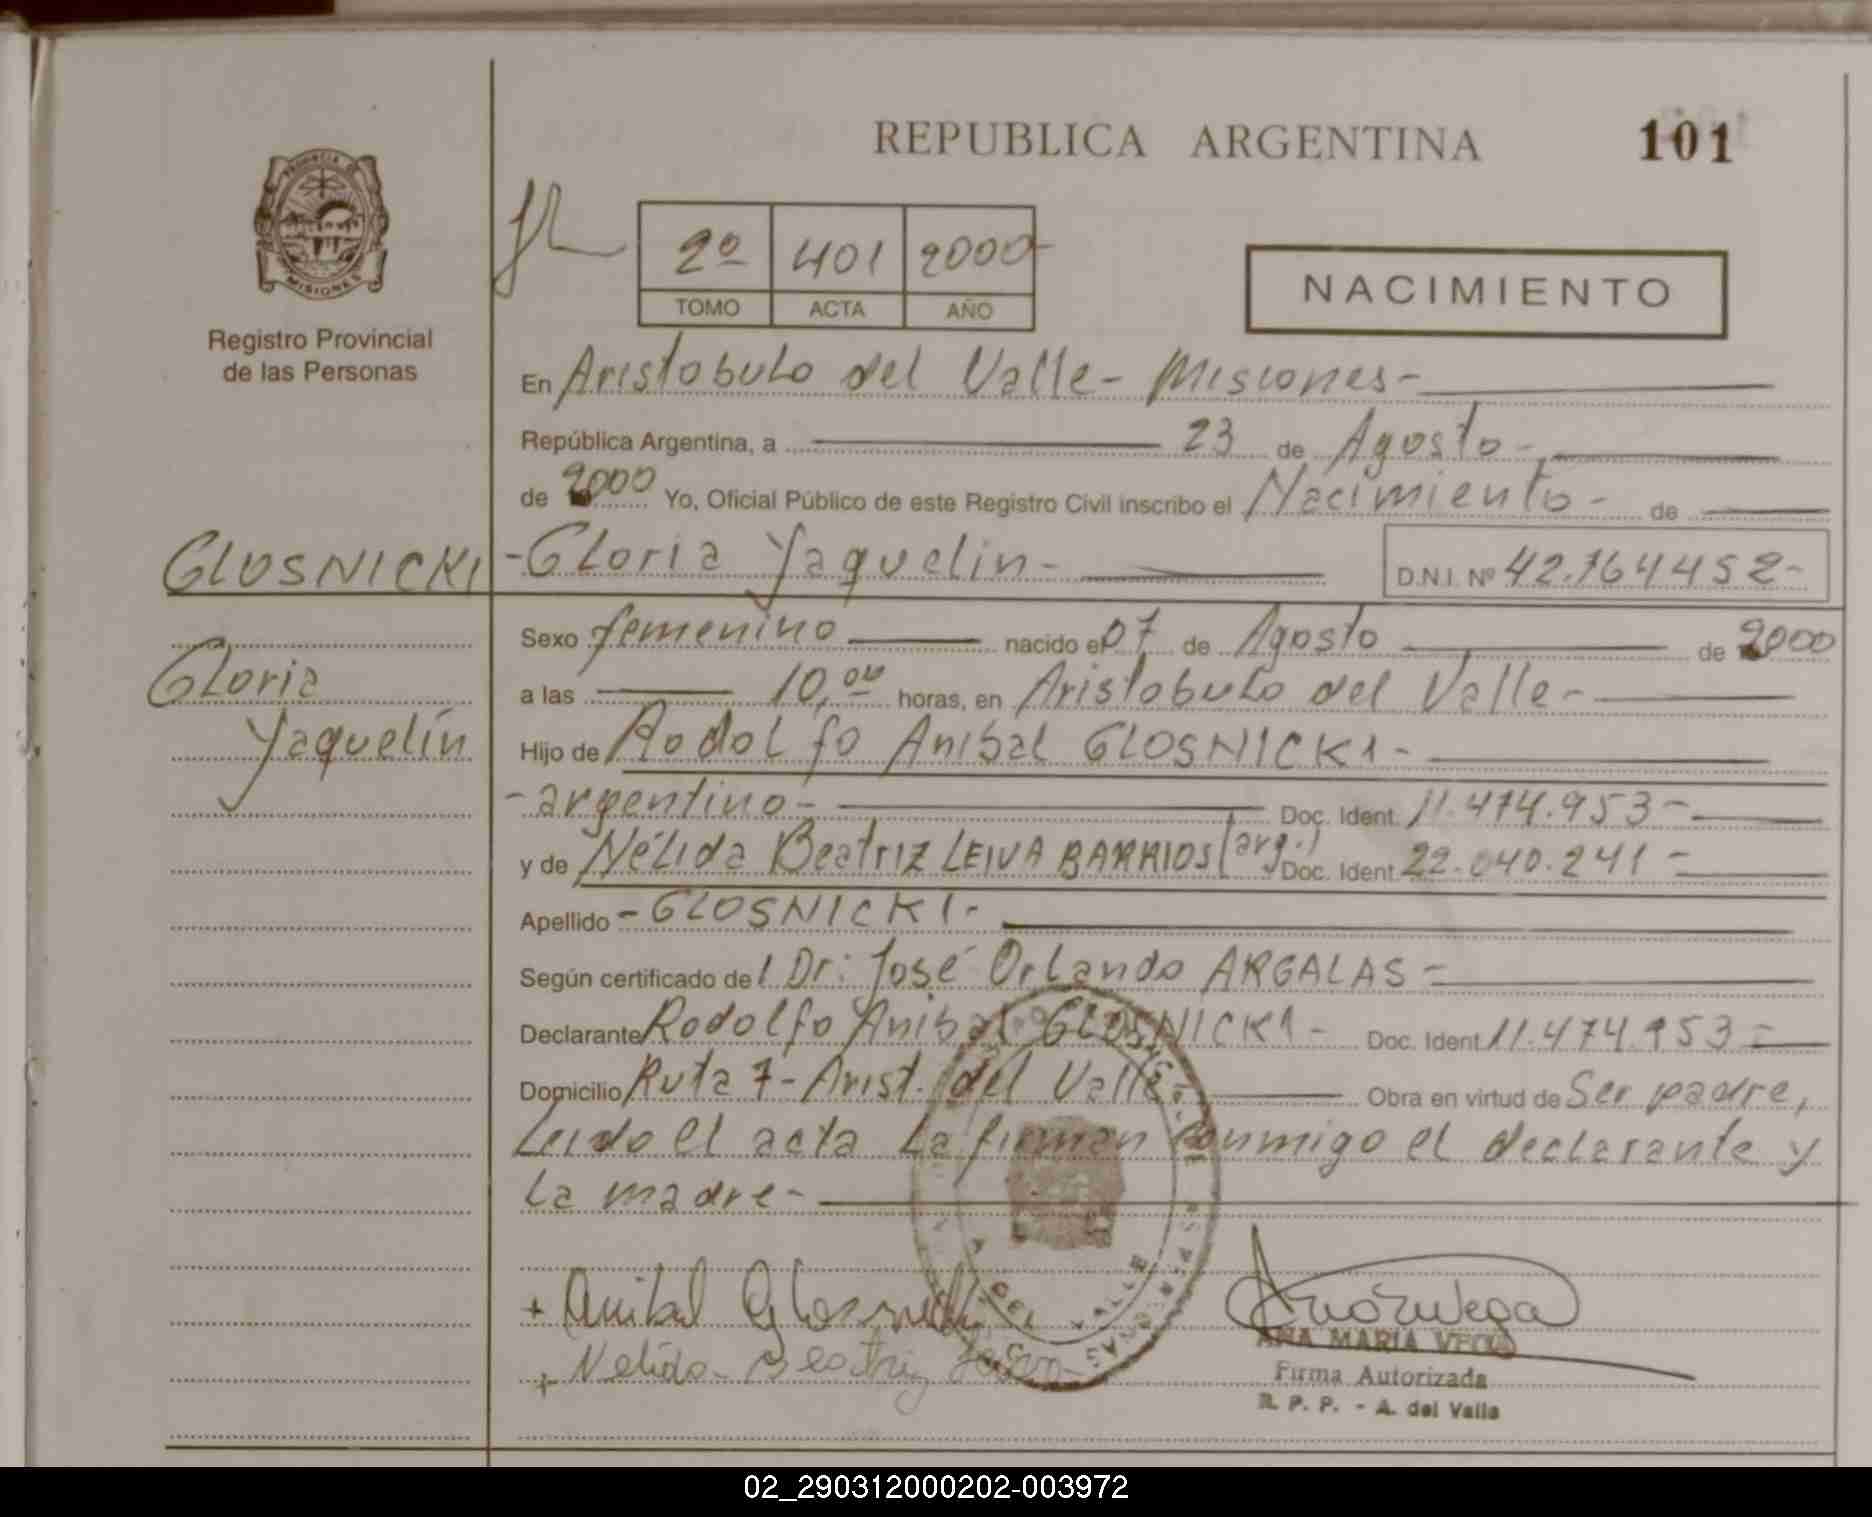 REPUBLICA ARGENTINA
101
PROVINCIA DE
MISIONES
Registro Provincial
de las Personas
2º 401 2000-
TOMO ACTA AÑO
NACIMIENTO
En Aristobulo del Valle- Misiones-
República Argentina, a 23 de Agosto-
de 2000 Yo, Oficial Público de este Registro Civil inscribo el Nacimiento- de
GLOSNICKI -Gloria Yaquelin- D.N.I. Nº 42.764452-
Sexo femenino nacido el 07 de Agosto de 2000
Gloria
a las 10,00 horas, en Aristobulo del Valle-
Yaquelín
Hijo de Rodolfo Anibal GLOSNICKI-
-argentino- Doc. Ident. 11.474.953-
y de Nélida Beatriz LEIVA BARRIOS (arg.) Doc. Ident. 22.040.241-
Apellido -GLOSNICKI-
Según certificado del Dr: José Orlando ARGALAS-
Declarante Rodolfo Anibal GLOSNICKI- Doc. Ident. 11.474.953-
Domicilio Ruta 7- Arist. del Valle. Obra en virtud de Ser padre,
Leido el acta la firman conmigo el declarante y
la madre-
+ Anibal Glosnicki
ANA MARIA VEGA
+ Nelida Beatriz
Firma Autorizada
R. P. P. - A. del Valle
DEL VALLE
02_290312000202-003972